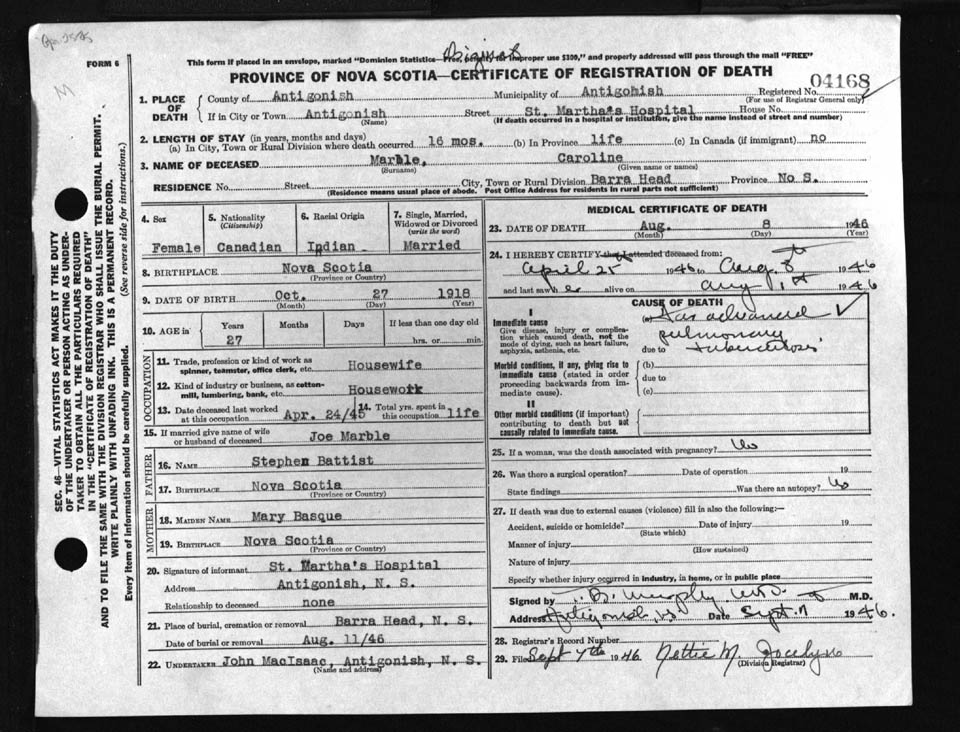 FORM 6
This form if placed in an envelope, marked "Dominion Statistics—Free, penalty for improper use $300," and properly addressed will pass through the mail "FREE"
PROVINCE OF NOVA SCOTIA—CERTIFICATE OF REGISTRATION OF DEATH
04168
1. PLACE OF DEATH
County of Antigonish Municipality of Antigonish Registered No.
(For use of Registrar General only)
If in City or Town Antigonish Street St. Martha's Hospital House No.
(Name) (If death occurred in a hospital or institution, give the name instead of street and number)
2. LENGTH OF STAY (in years, months and days)
(a) In City, Town or Rural Division where death occurred 16 mos. (b) In Province life (c) In Canada (if immigrant) no
3. NAME OF DECEASED Marble, Caroline
(Surname) (Given name or names)
RESIDENCE No. Street City, Town or Rural Division Barra Head Province No S.
(Residence means usual place of abode. Post Office Address for residents in rural parts not sufficient)
4. Sex
Female
5. Nationality
(Citizenship)
Canadian
6. Racial Origin
Indian
7. Single, Married, Widowed or Divorced
(write the word)
Married
8. BIRTHPLACE Nova Scotia
(Province or Country)
9. DATE OF BIRTH Oct. 27 1918
(Month) (Day) (Year)
10. AGE in
Years Months Days If less than one day old
27 hrs. or min.
OCCUPATION
11. Trade, profession or kind of work as
spinner, teamster, office clerk, etc. Housewife
12. Kind of industry or business, as cotton-
mill, lumbering, bank, etc. Housework
13. Date deceased last worked
at this occupation Apr. 24/45
14. Total yrs. spent in
this occupation life
15. If married give name of wife
or husband of deceased Joe Marble
FATHER
16. NAME Stephen Battist
17. BIRTHPLACE Nova Scotia
(Province or Country)
MOTHER
18. MAIDEN NAME Mary Basque
19. BIRTHPLACE Nova Scotia
(Province or Country)
20. Signature of informant St. Martha's Hospital
Address Antigonish, N. S.
Relationship to deceased none
21. Place of burial, cremation or removal Barra Head, N. S.
Date of burial or removal Aug. 11/46
22. UNDERTAKER John MacIsaac, Antigonish, N. S.
(Name and address)
MEDICAL CERTIFICATE OF DEATH
23. DATE OF DEATH Aug. 8 1946
(Month) (Day) (Year)
24. I HEREBY CERTIFY that I attended deceased from:
April 25 1946 to Aug. 8th 1946
and last saw her alive on Aug 1st 1946
CAUSE OF DEATH
I
Immediate cause
Give disease, injury or complica-
tion which caused death, not the
mode of dying, such as heart failure,
asphyxia, asthenia, etc.
(a) Far advanced
pulmonary
due to tuberculosis
Morbid conditions, if any, giving rise to
immediate cause (stated in order
proceeding backwards from im-
mediate cause).
(b)
due to
(c)
II
Other morbid conditions (if important)
contributing to death but not
causally related to immediate cause.
25. If a woman, was the death associated with pregnancy? No
26. Was there a surgical operation? Date of operation 19
State findings Was there an autopsy? No
27. If death was due to external causes (violence) fill in also the following:—
Accident, suicide or homicide? Date of injury 19
(State which)
Manner of injury
(How sustained)
Nature of injury
Specify whether injury occurred in industry, in home, or in public place
Signed by Murphy M.D. M.D.
Address Antigonish, N.S. Date Sept. 7 1946.
28. Registrar's Record Number
29. Filed Sept 7th 1946 Nettie M. Jocelyn
(Division Registrar)
SEC. 46—VITAL STATISTICS ACT MAKES IT THE DUTY
OF THE UNDERTAKER OR PERSON ACTING AS UNDER-
TAKER TO OBTAIN ALL THE PARTICULARS REQUIRED
IN THE "CERTIFICATE OF REGISTRATION OF DEATH"
AND TO FILE THE SAME WITH THE DIVISION REGISTRAR WHO SHALL ISSUE THE BURIAL PERMIT.
WRITE PLAINLY WITH UNFADING INK. THIS IS A PERMANENT RECORD.
Every item of information should be carefully supplied. (See reverse side for instructions.)